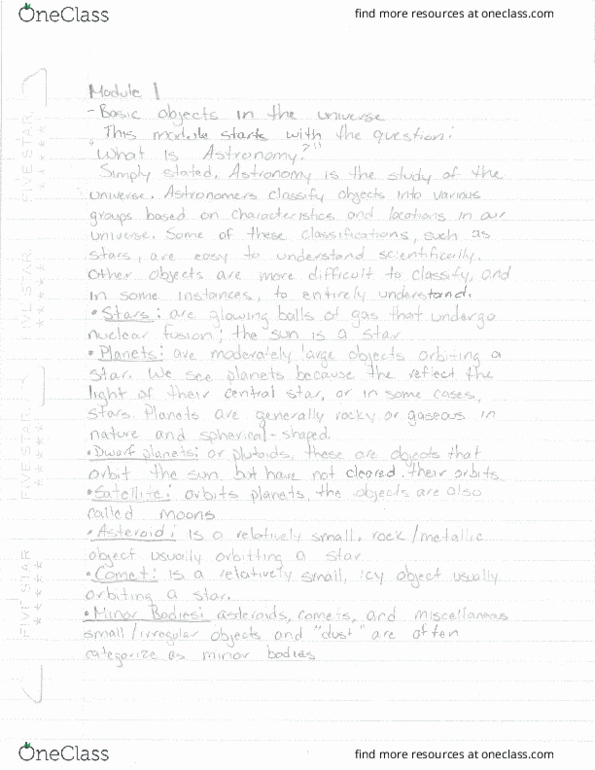 OneClass find more resources at oneclass.com
Module 1
- Basic objects in the universe
This module starts with the question:
"What is Astronomy?"
Simply stated, Astronomy is the study of the
universe. Astronomers classify objects into various
groups based on characteristics and locations in our
universe. Some of these classifications, such as
stars, are easy to understand scientifically.
Other objects are more difficult to classify, and
in some instances, to entirely understand.
• Stars: are glowing balls of gas that undergo
nuclear fusion; the sun is a star
• Planets: are moderately large objects orbiting a
star. We see planets because the reflect the
light of their central star, or in some cases,
stars. Planets are generally rocky or gaseous in
nature and spherical-shaped.
• Dwarf planets: or plutoids, these are objects that
orbit the sun but have not cleared their orbits
• Satellite: orbits planets, the objects are also
called moons
• Asteroid: is a relatively small, rock/metallic
object usually orbitting a star
• Comet: is a relatively small, icy object usually
orbiting a star.
• Minor Bodies: asteroids, comets, and miscellaneous
small/irregular objects and "dust" are often
categorize as minor bodies
FIVE STAR
FIVE STAR
FIVE STAR
FIVE STAR
OneClass find more resources at oneclass.com